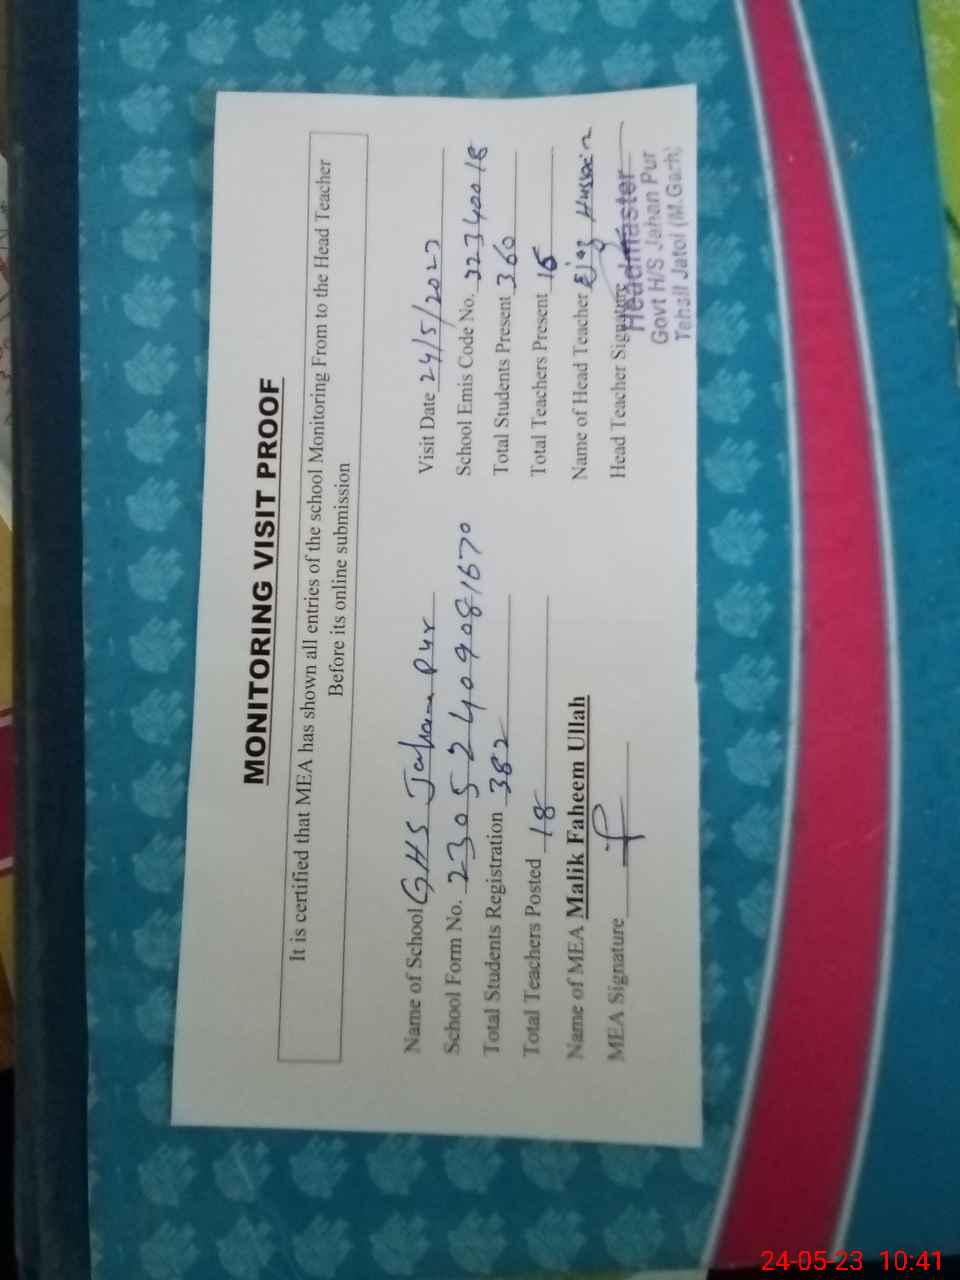 MONITORING VISIT PROOF
It is certified that MEA has shown all entries of the school Monitoring From to the Head Teacher
Before its online submission
Name of School GHS Jahan Pur Visit Date 24/5/2023
School Form No. 23052409081670 School Emis Code No. 32340018
Total Students Registration 382 Total Students Present 360
Total Teachers Posted 18 Total Teachers Present 16
Name of MEA Malik Faheem Ullah Name of Head Teacher Ejaz Hussain
MEA Signature Head Teacher Signature
Headmaster
Govt H/S Jahan Pur
Tehsil Jatoi (M.Garh)
24-05-23 10:41